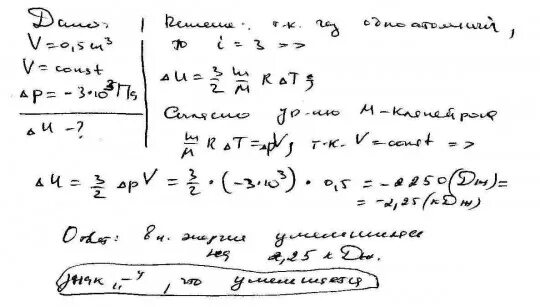 Дано:
V = 0,5 м³
V = const
Δp = -3·10³ Па
ΔU - ?
Решение: т.к. газ одноатомный,
то i = 3 =>
ΔU = 3/2 m/M R ΔT;
Согласно ур-ию М-Клапейрона
m/M R ΔT = ΔpV; т.к. V = const =>
ΔU = 3/2 ΔpV = 3/2 · (-3·10³) · 0,5 = -2250 (Дж) =
= -2,25 (кДж)
Ответ: вн. энергия уменьшилась
на 2,25 кДж.
знак „-“, что уменьшается